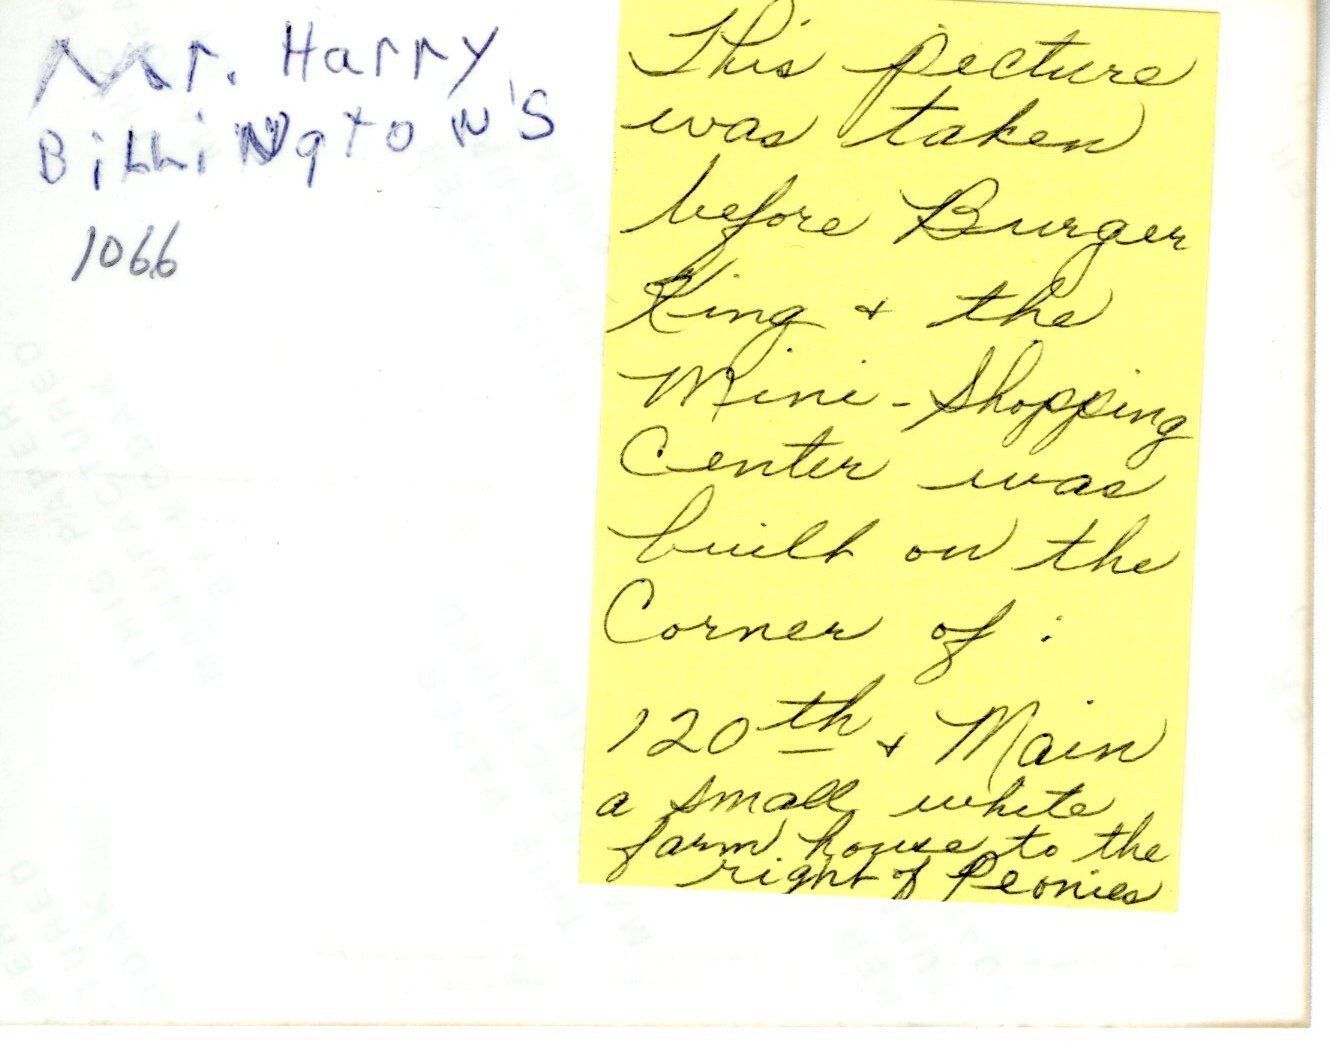 Mr. Harry
BiLLiNgtoN'S
1066
This picture
was taken
before Burger
King + the
Mini-Shopping
Center was
built on the
Corner of :
120th + Main
a small white
farm house to the
right of Peonies
THIS PAPER
MANUFACTURED
BY KODAK